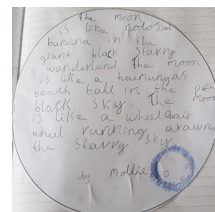 The moon
is like colossal
banana in the
giant black starry
wanderland The moon
is like a haumungas
beach ball in the
black sky. The Moon
is like a wheelbair
wheel running arawnd
the starry sky
by Mollie